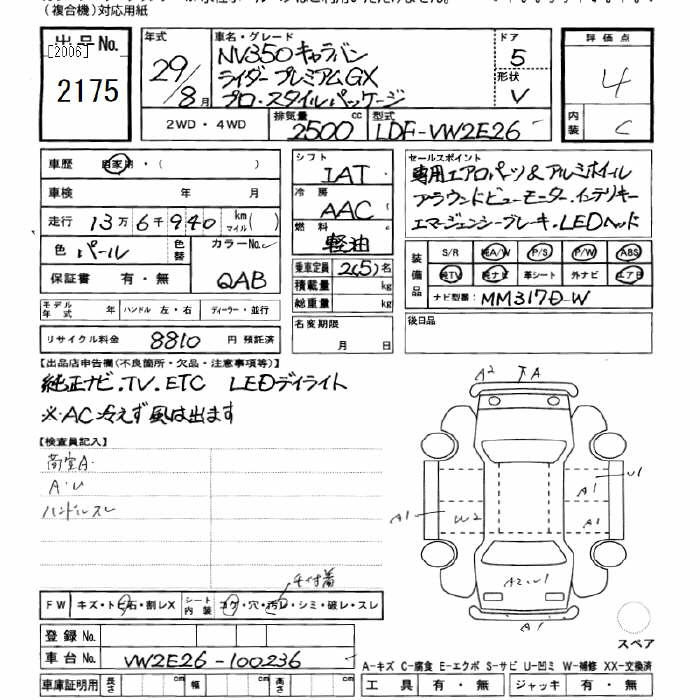 (複合機)対応用紙
出品No.
[2006]
2175
年式
29/8月
車名・グレード
NV350キャラバン
ライダープレミアムGX
プロ・スタイルパッケージ
ドア
5
形状
V
2WD・4WD
排気量
2500cc
型式
LDF-VW2E26
評価点
4
内装
C
車歴 自家用・( )
車検 年 月
走行 13万6千940 km マイル( )
色 パール
色替
カラーNo.
QAB
保証書 有・無
モデル年式 年 ハンドル 左・右 ディーラー・並行
リサイクル料金 8810 円 預託済
シフト
IAT
冷房
AAC
燃料
軽油
乗車定員 2(5)名
積載量 kg
総重量 kg
名変期限
月 日
セールスポイント
専用エアロパーツ&アルミホイール
アラウンドビューモニター.インテリキー
エマージェンシーブレーキ.LEDヘッド
装備品
S/R 純A/W P/S P/W ABS
純TV 純ナビ 革シート 外ナビ エアB
ナビ型番: MM317D-W
後日品
【出品店申告欄(不良箇所・欠品・注意事項等)】
純正ナビ.TV.ETC LEDデイライト
※AC冷えず風は出ます
【検査員記入】
荷室A.
A.U
ハンドルスレ
A2 A
U1
A1
A1 W2 A1
A2.U1
A1
スペア
FW キズ・トビ石・割レX
シート内装 コゲ・穴・汚レ・シミ・破レ・スレ
登録No.
車台No. VW2E26-100236
車庫証明用 長さ cm 幅 cm 高さ cm
A-キズ C-腐食 E-エクボ S-サビ U-凹ミ W-補修 XX-交換済
工具 有・無 ジャッキ 有・無